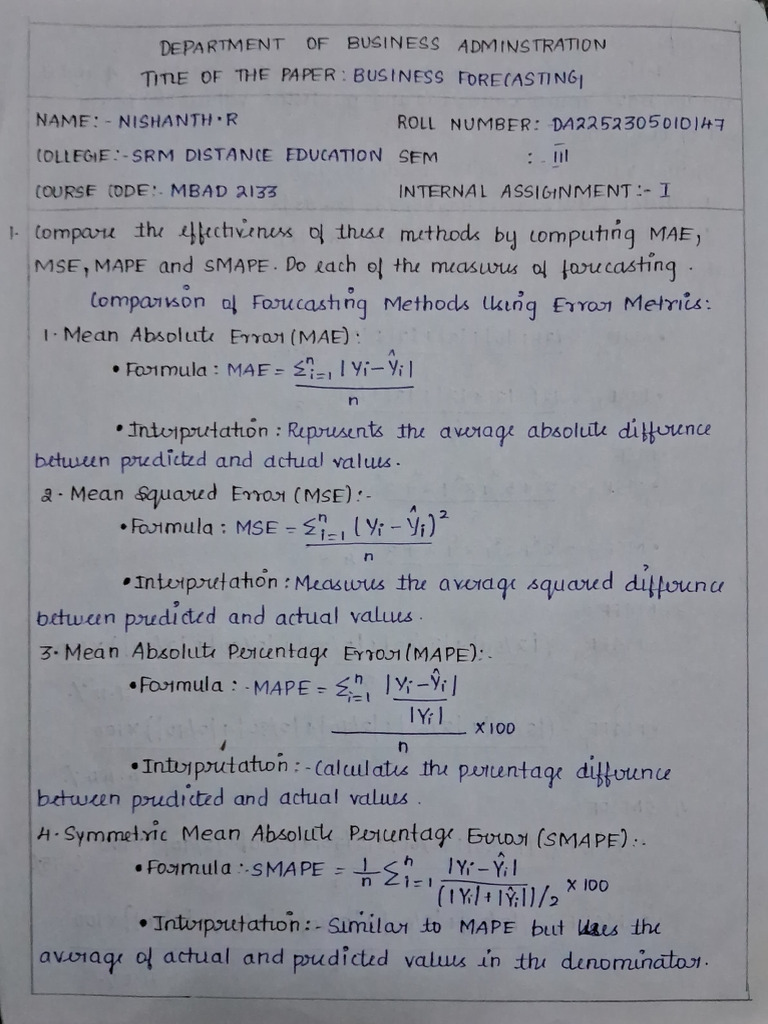 DEPARTMENT OF BUSINESS ADMINSTRATION
TITLE OF THE PAPER: BUSINESS FORECASTING
NAME:- NISHANTH.R ROLL NUMBER: DA2252305010147
COLLEGE:- SRM DISTANCE EDUCATION SEM : III
COURSE CODE:- MBAD 2133 INTERNAL ASSIGINMENT:- I
1. Compare the effectiveness of these methods by computing MAE,
MSE, MAPE and SMAPE. Do each of the measures of forecasting.
Comparison of Forecasting Methods Using Error Metrics:
1. Mean Absolute Error (MAE):
• Formula: MAE = Σⁿᵢ₌₁ |Yi − Ŷi| / n
• Interpretation: Represents the average absolute difference
between predicted and actual values.
2. Mean Squared Error (MSE):-
• Formula: MSE = Σⁿᵢ₌₁ (Yi − Ŷi)² / n
• Interpretation: Measures the average squared difference
between predicted and actual values.
3. Mean Absolute Percentage Error (MAPE):-
• Formula: - MAPE = Σⁿᵢ₌₁ |Yi − Ŷi| / |Yi| / n × 100
• Interpretation:- Calculates the percentage difference
between predicted and actual values.
4. Symmetric Mean Absolute Percentage Error (SMAPE):-
• Formula:- SMAPE = 1/n Σⁿᵢ₌₁ |Yi − Ŷi| / (|Yi| + |Ŷi|)/2 × 100
• Interpretation:- Similar to MAPE but Uses the
average of actual and predicted values in the denominator.